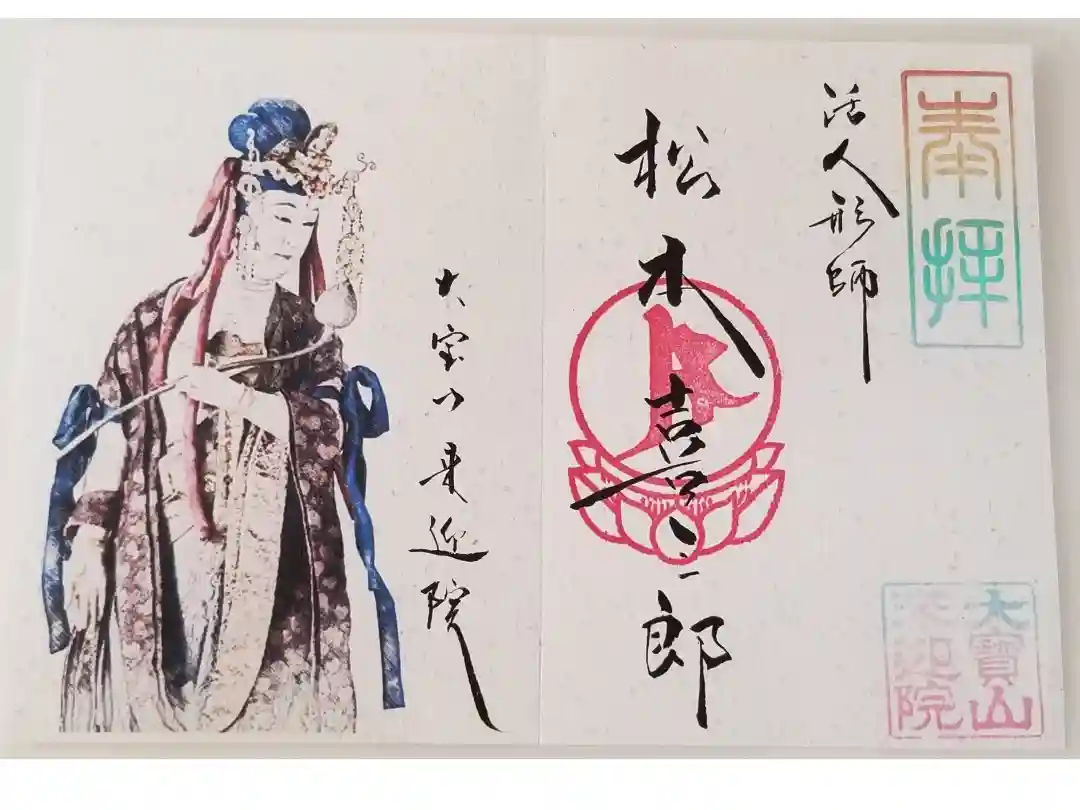 奉拝
活人形師
松本喜三郎
大宝山
来迎院
大宝山来迎院